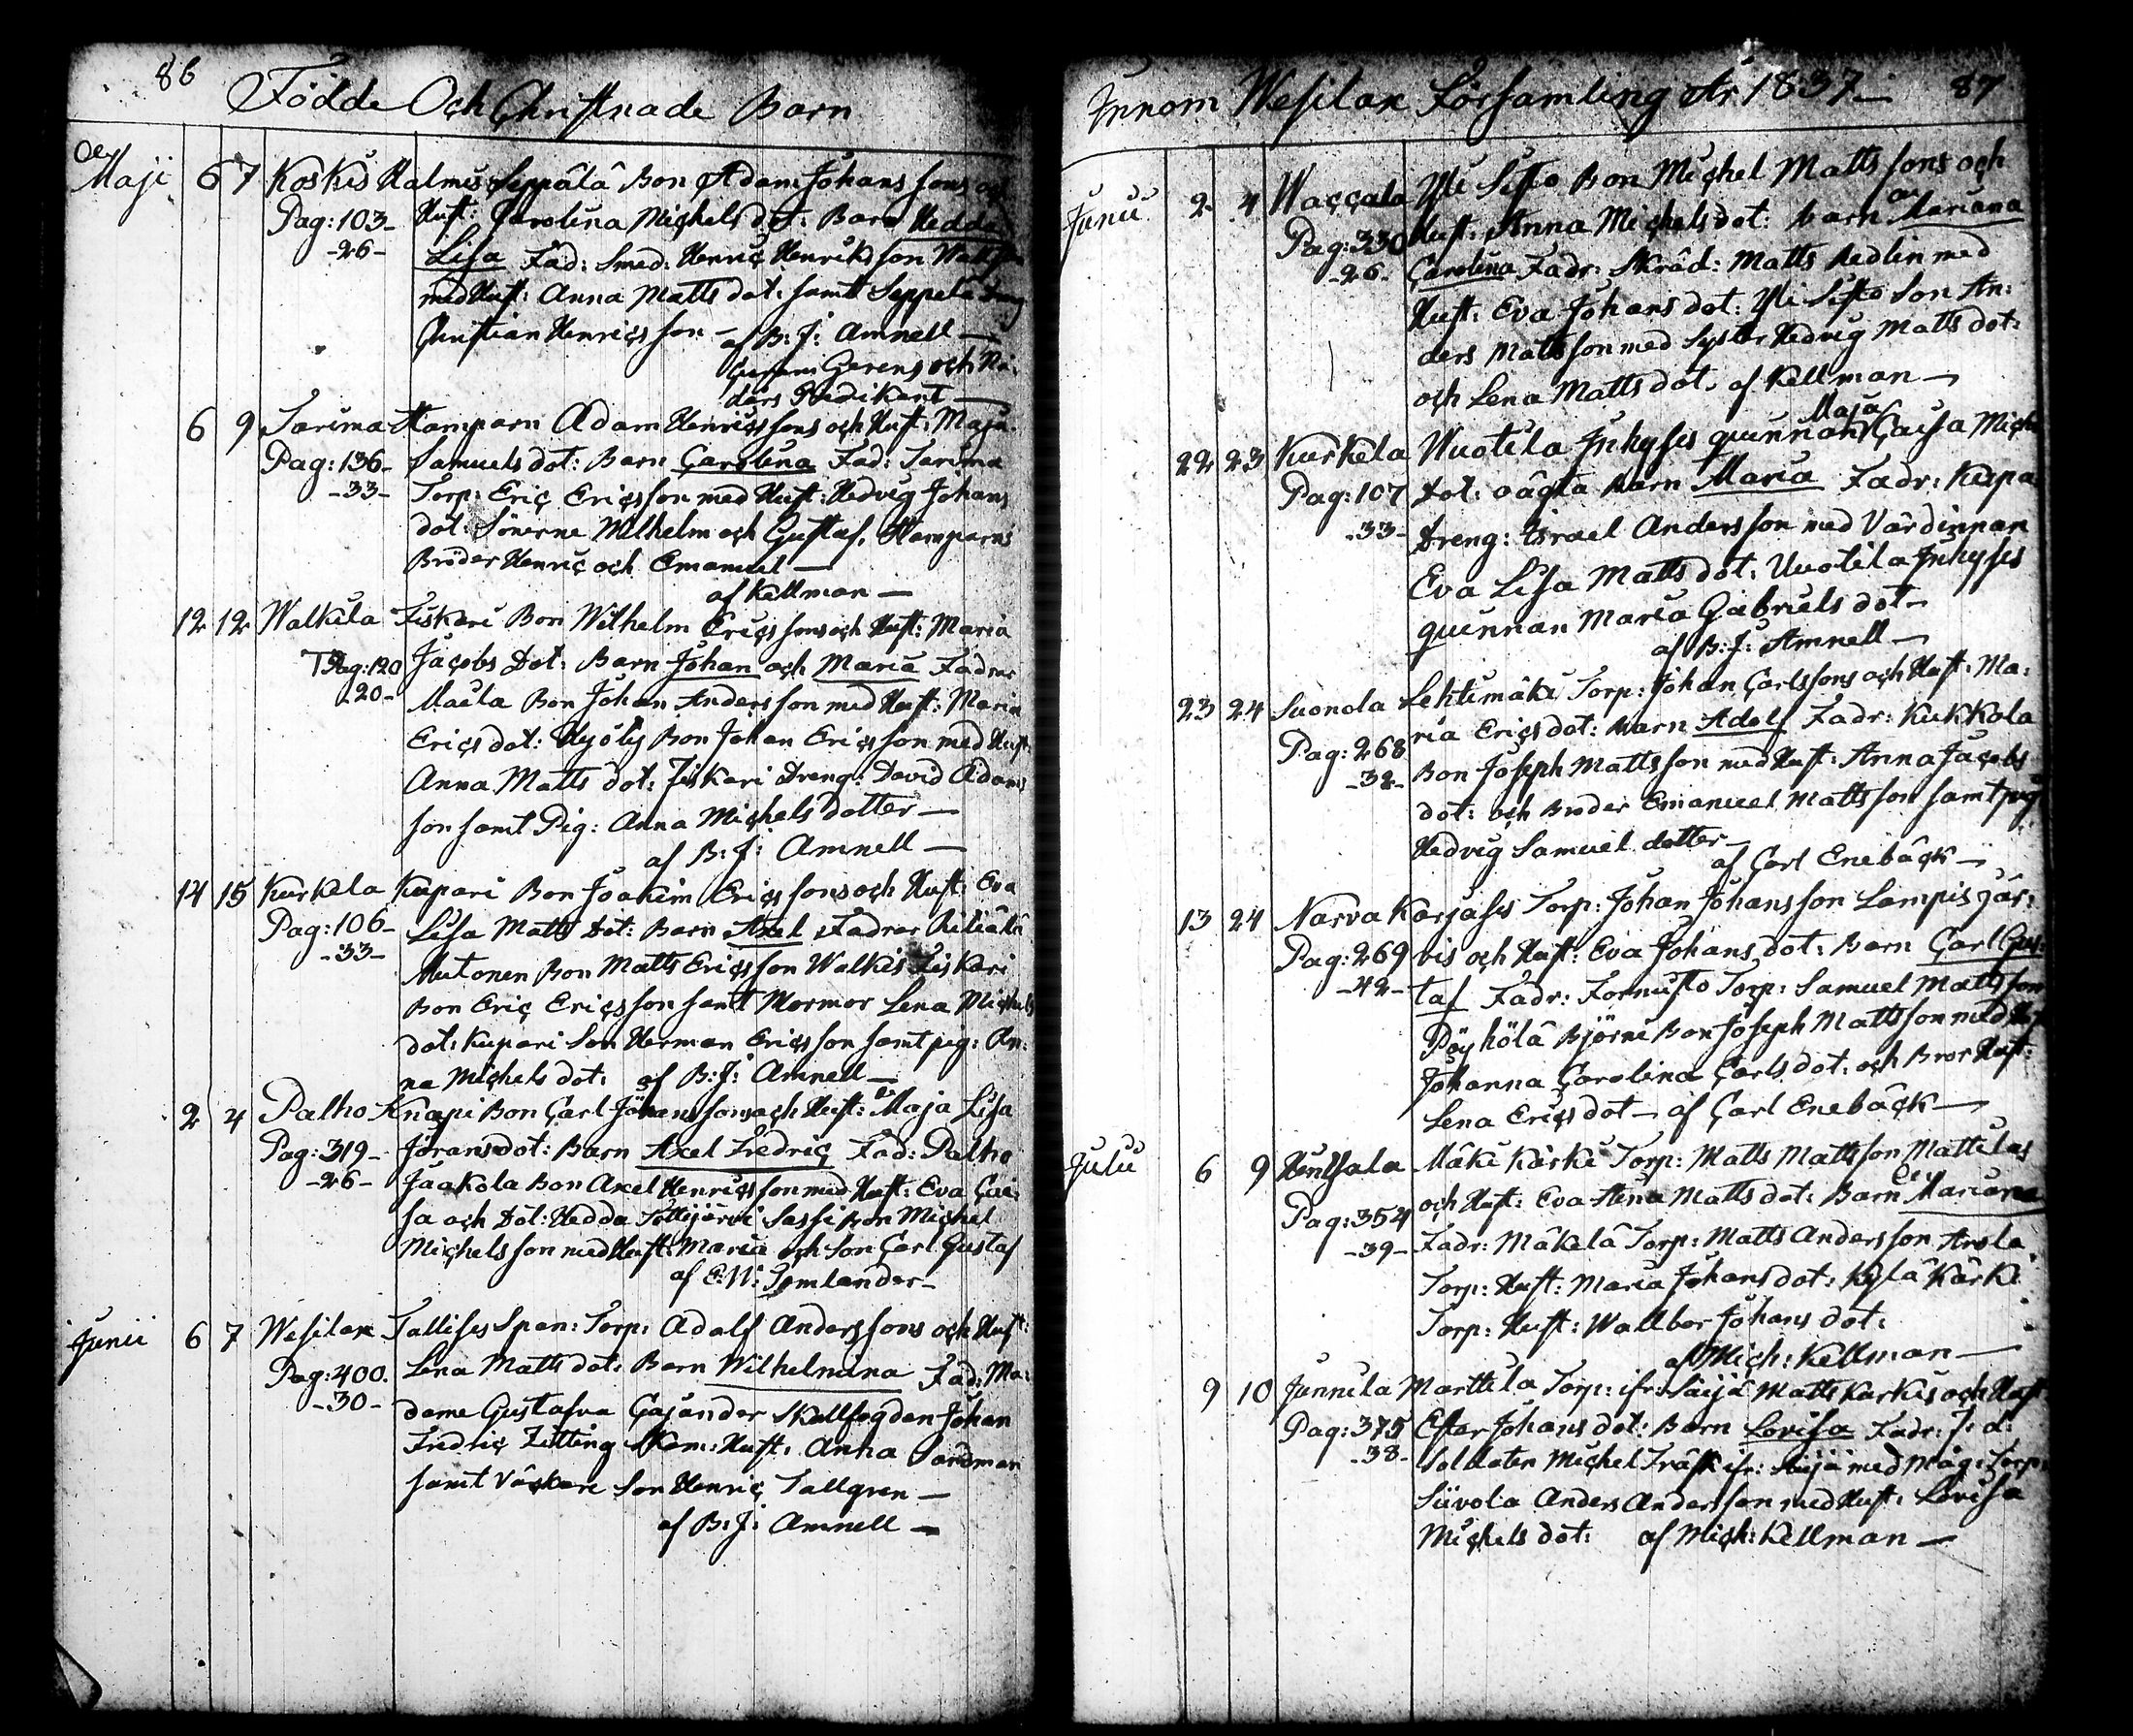 86
Födde Och Christnade Barn
Maji 6 7 Koskis Malmis Seppälä Bon Adam Johans sons och
Pag: 103 Hust: Carolina Michels dot: Barn Hedda
-26- Lisa Fad: Smed: Henric Henriksson
med Hust: Anna Matts dot: samt Seppälä
Christian Henrics son - af B: J: Amnell -
Gerens och
ders Predikant -
6 9 Sarima Hamparn Adam Henrics sons och Hust: Maja
Pag: 136- Samuels dot: Barn Carolina Fad: Sarima
-33- Torp: Eric Ericsson med Hust: Hedvig Johans
dot: Sönerne Wilhelm och Gustaf, Hamparns
Bröder Henric och Emanuel -
af Kellman -
12 12 Walkila Fiskari Bon Wilhelm Erics sons och Hust: Maria
Pag: 120 Jacobs Dot: Barn Johan och Maria Fadrar
20- Bon Johan Andersson med Hust: Maria
Erics dot: Hyöly Bon Johan Ericsson med Hust:
Anna Matts dot: Fiskari Dreng: David Adams
son samt Pig: Anna Michels dotter -
af B: J: Amnell -
14 15 Kurkela Kupari Bon Joakim Erics sons och Hust: Eva
Pag: 106- Lisa Matts Dot: Barn Axel Fadrar
-33- Mutonen Bon Matts Ericsson Walkis Fiskari
Bon Eric Ericsson samt Mormor Lena Michels
dot: Kupari Son Herman Ericsson samt pig: An:
na Michels dot: af B: J: Amnell -
2 4 Palho Knapi Bon Carl Johans sons och Hust: Maja Lisa
Pag: 319- Jörans dot: Barn Axel Fredric Fad: Palho
-26- Jaakola Bon Axel Henricsson med Hust: Eva Cai:
sa och Dot: Hedda Sottijärvi Sassi Bon Michel
Michelsson med Hust: Maria och Son Carl Gustaf
af E: W:
Junii 6 7 Wesilax Tallises Span: Torp: Adolf Anders sons och Hust:
Pag: 400. Lena Matts dot: Barn Wilhelmina Fad: Ma:
-30- dame Gustafva Cajander Skallfogden Johan
Fredric Zitting Hust: Anna Sandman
samt Väskari Son Henric Tallgren -
af B: J: Amnell -
Innom Wesilax Församling År 1837- 87
Junii 2 4 Waccala Yli Sisto Bon Michel Matts sons och
Pag: 330 Hust: Anna Michels dot: barn Mariana
-26- Carolina Fadr: Skräd: Matts Hedlin med
Hust: Eva Johans dot: Yli Sisto Son An:
ders Mattsson med Syster Hedvig Matts dot:
och Lena Matts dot. af Kellman -
Maja
22 23 Kurkela Wuotila Inhyses quinnan Caisa Michels
Pag: 107 Dot: oägta Barn Maria Fadr: Kupari
-33- Dreng: Israel Andersson med Värdinnan
Eva Lisa Matts dot: Wuotila Inhyses
quinnan Maria Gabriels dot-
af B: J: Amnell -
23 24 Suonola Lehtimäki Torp: Johan Carls sons och Hust: Ma:
Pag: 268 ria Erics dot: Barn Adolf Fadr: Kukkola
-32- Bon Joseph Mattsson med Hust: Anna Jacobs
dot: och Broder Emanuel Mattsson samt pig
Hedvig Samuel dotter-
af Carl Enebäck -
13 24 Narva Karjases Torp: Johan Johansson Lampis Jär:
Pag: 269 vis och Hust: Eva Johans dot: Barn Carl Gus:
-42- taf Fadr: Fornisto Torp: Samuel Mattsson
Pöyhölä Björni Bon Joseph Mattsson med Hust
Johanna Carolina Carls dot: och Bror Hust:
Lena Erics dot - af Carl Enebäck -
Julii 6 9 Hentsala Mäki Kärki Torp: Matts Mattsson Mattilas
Pag: 354 och Hust: Eva Stena Matts dot: Barn Mariana
-39- Fadr: Mäkelä Torp: Matts Andersson Arola
Torp: Hust: Maria Johans dot: Kylä Kärki
Torp: Hust: Wallbor Johans dot:
af Mich: Kellman -
9 10 Junnila Marttila Torp: ifr: Säijä Matts Karkis och Hust:
Pag: 375 Ester Johans dot: Barn Lovisa Fadr: F: d:
-38- Soldaten Michel Träsk ifr: Säijä med Mäg: Torp:
Siivola Anders Andersson med Hust: Lovisa
Michels dot: af Mich: Kellman -